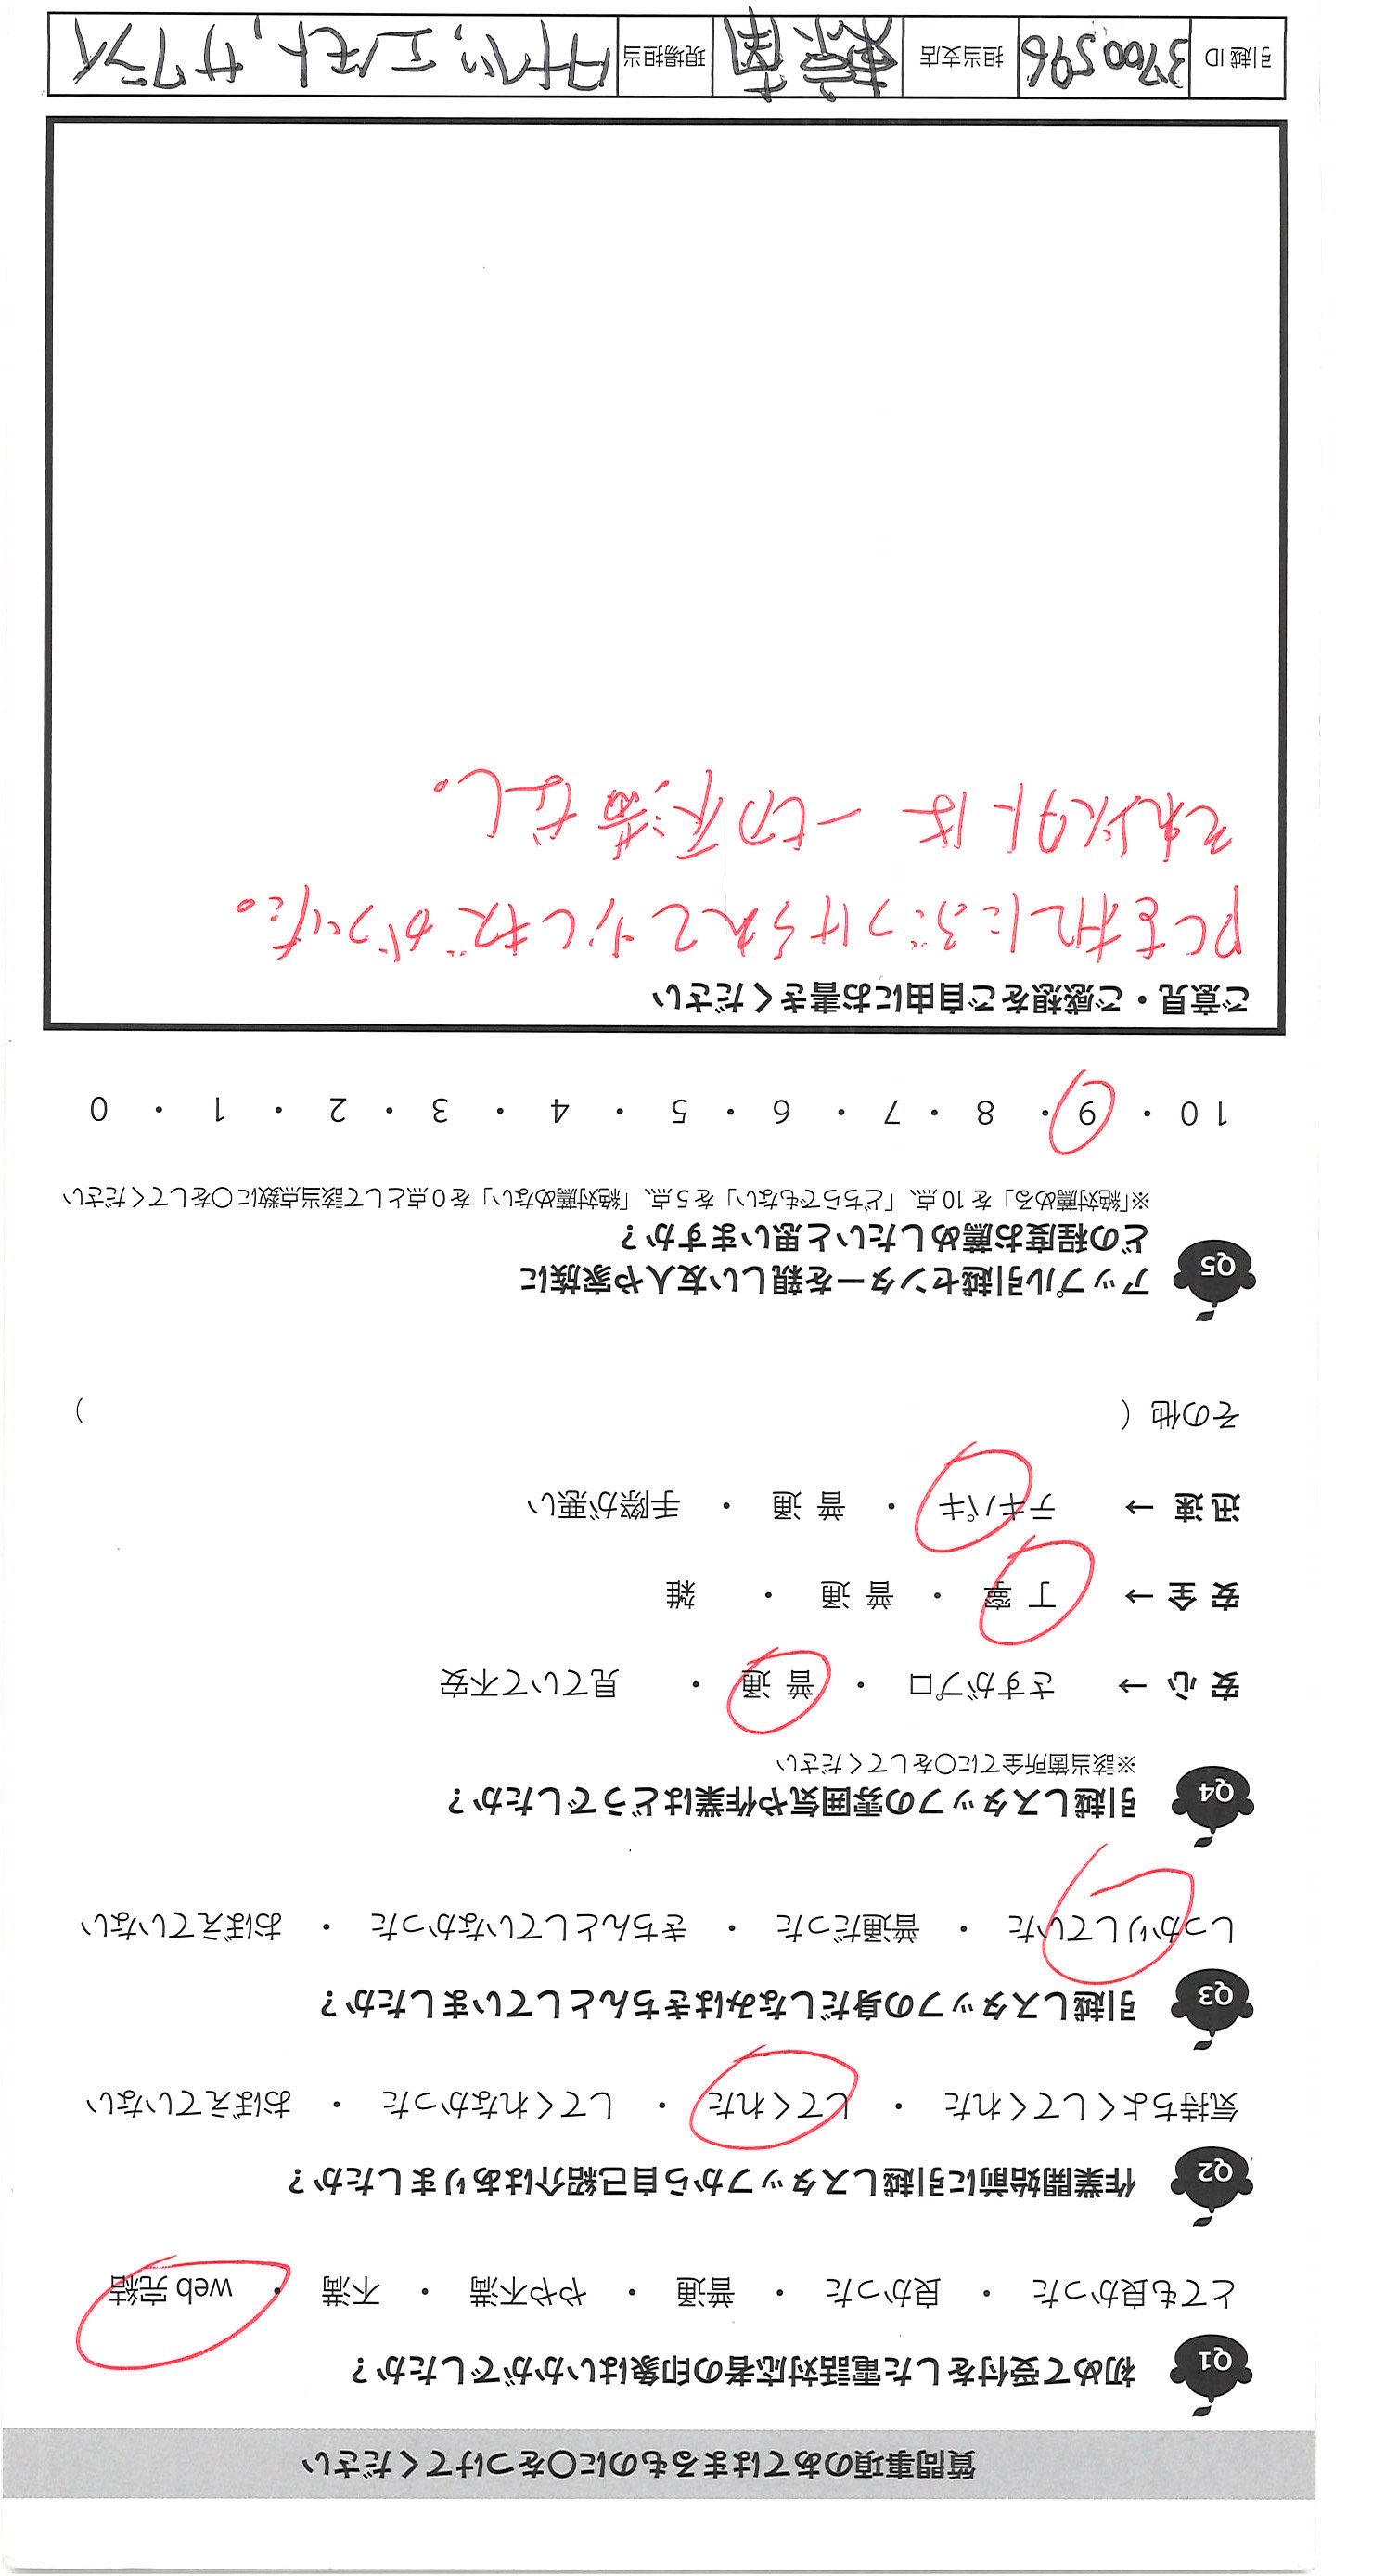 質問事項のあてはまるものに〇をつけてください
Q1 初めて受付をした電話対応者の印象はいかがでしたか？
とても良かった ・ 良かった ・ 普通 ・ やや不満 ・ 不満 ・ web 完結
Q2 作業開始前に引越しスタッフから自己紹介はありましたか？
気持ちよくしてくれた ・ してくれた ・ してくれなかった ・ おぼえていない
Q3 引越しスタッフの身だしなみはきちんとしていましたか？
しっかりしていた ・ 普通だった ・ きちんとしていなかった ・ おぼえていない
Q4 引越しスタッフの雰囲気や作業はどうでしたか？
※該当箇所全てに〇をしてください
安 心 → さすがプロ ・ 普 通 ・ 見ていて不安
安 全 → 丁 寧 ・ 普 通 ・ 雑
迅 速 → テキパキ ・ 普 通 ・ 手際が悪い
その他（ ）
Q5 アップル引越センターを親しい友人や家族に
どの程度お薦めしたいと思いますか？
※「絶対薦める」を 10 点、「どちらでもない」を 5 点、「絶対薦めない」を 0 点として該当点数に〇をしてください
10 ・ 9 ・ 8 ・ 7 ・ 6 ・ 5 ・ 4 ・ 3 ・ 2 ・ 1 ・ 0
ご意見・ご感想をご自由にお書きください
PCを机にぶつけられて少しキズがついた。
それ以外は一切不満なし。
引越 ID 3700596 担当支店 現場担当 エノモト,